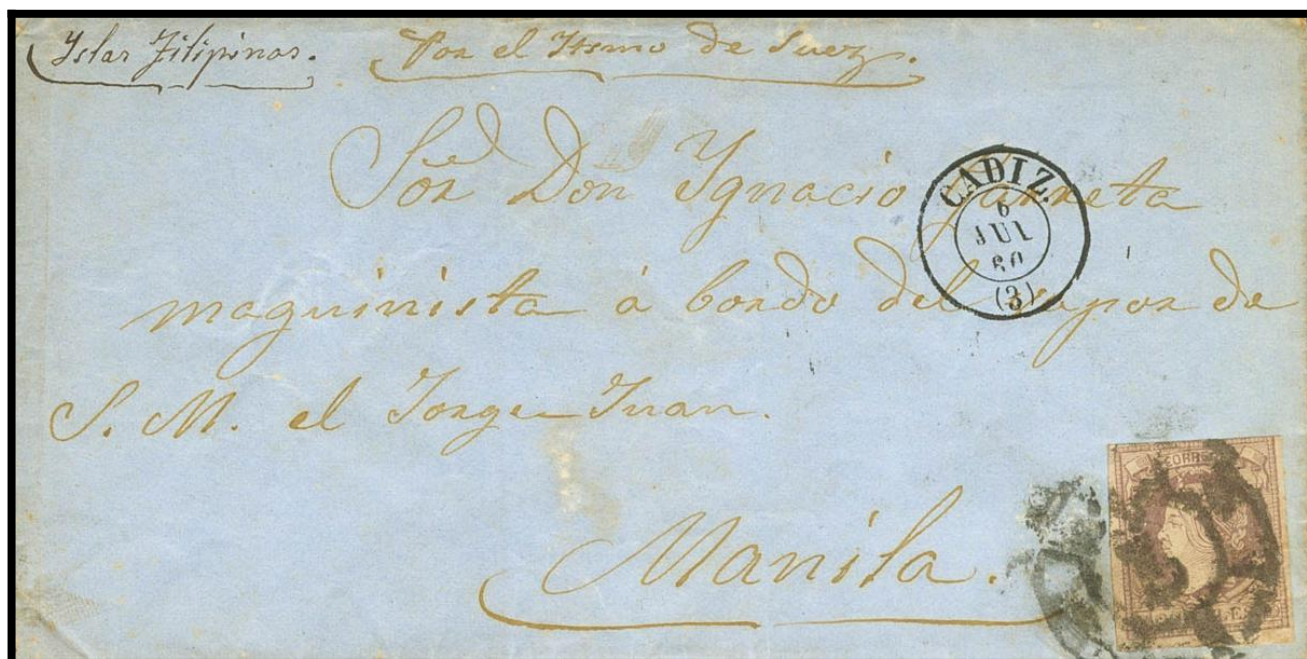 Yslas Filipinas. Por el Itsmo de Suez.
Sor Don Ygnacio Zarreta
maquinista á bordo del vapor de
S. M. el Jorge Juan.
Manila.
CADIZ.
6
JUL
60
(3)
CORREOS